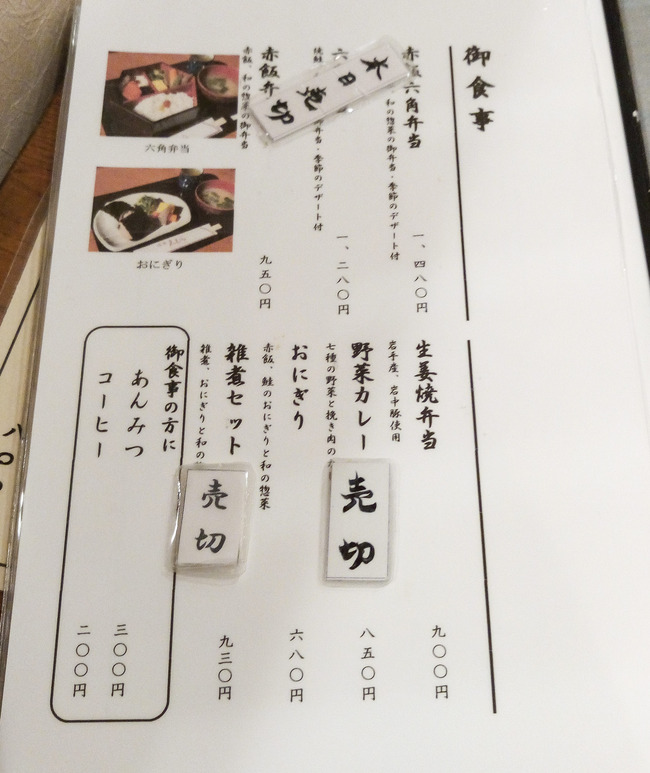 御食事
赤飯六角弁当
、和の惣菜の御弁当・季節のデザート付
一、四八〇円
六
焼鮭
弁当・季節のデザート付
一、二八〇円
本日売切
赤飯弁
赤飯、和の惣菜の御弁当
九五〇円
六角弁当
おにぎり
生姜焼弁当
岩手産、岩中豚使用
九〇〇円
野菜カレー
七種の野菜と挽き肉の
売切
八五〇円
おにぎり
赤飯、鮭のおにぎりと和の惣菜
六八〇円
雑煮セット
雑煮、おにぎりと和の
売切
九三〇円
御食事の方に
あんみつ
三〇〇円
コーヒー
二〇〇円